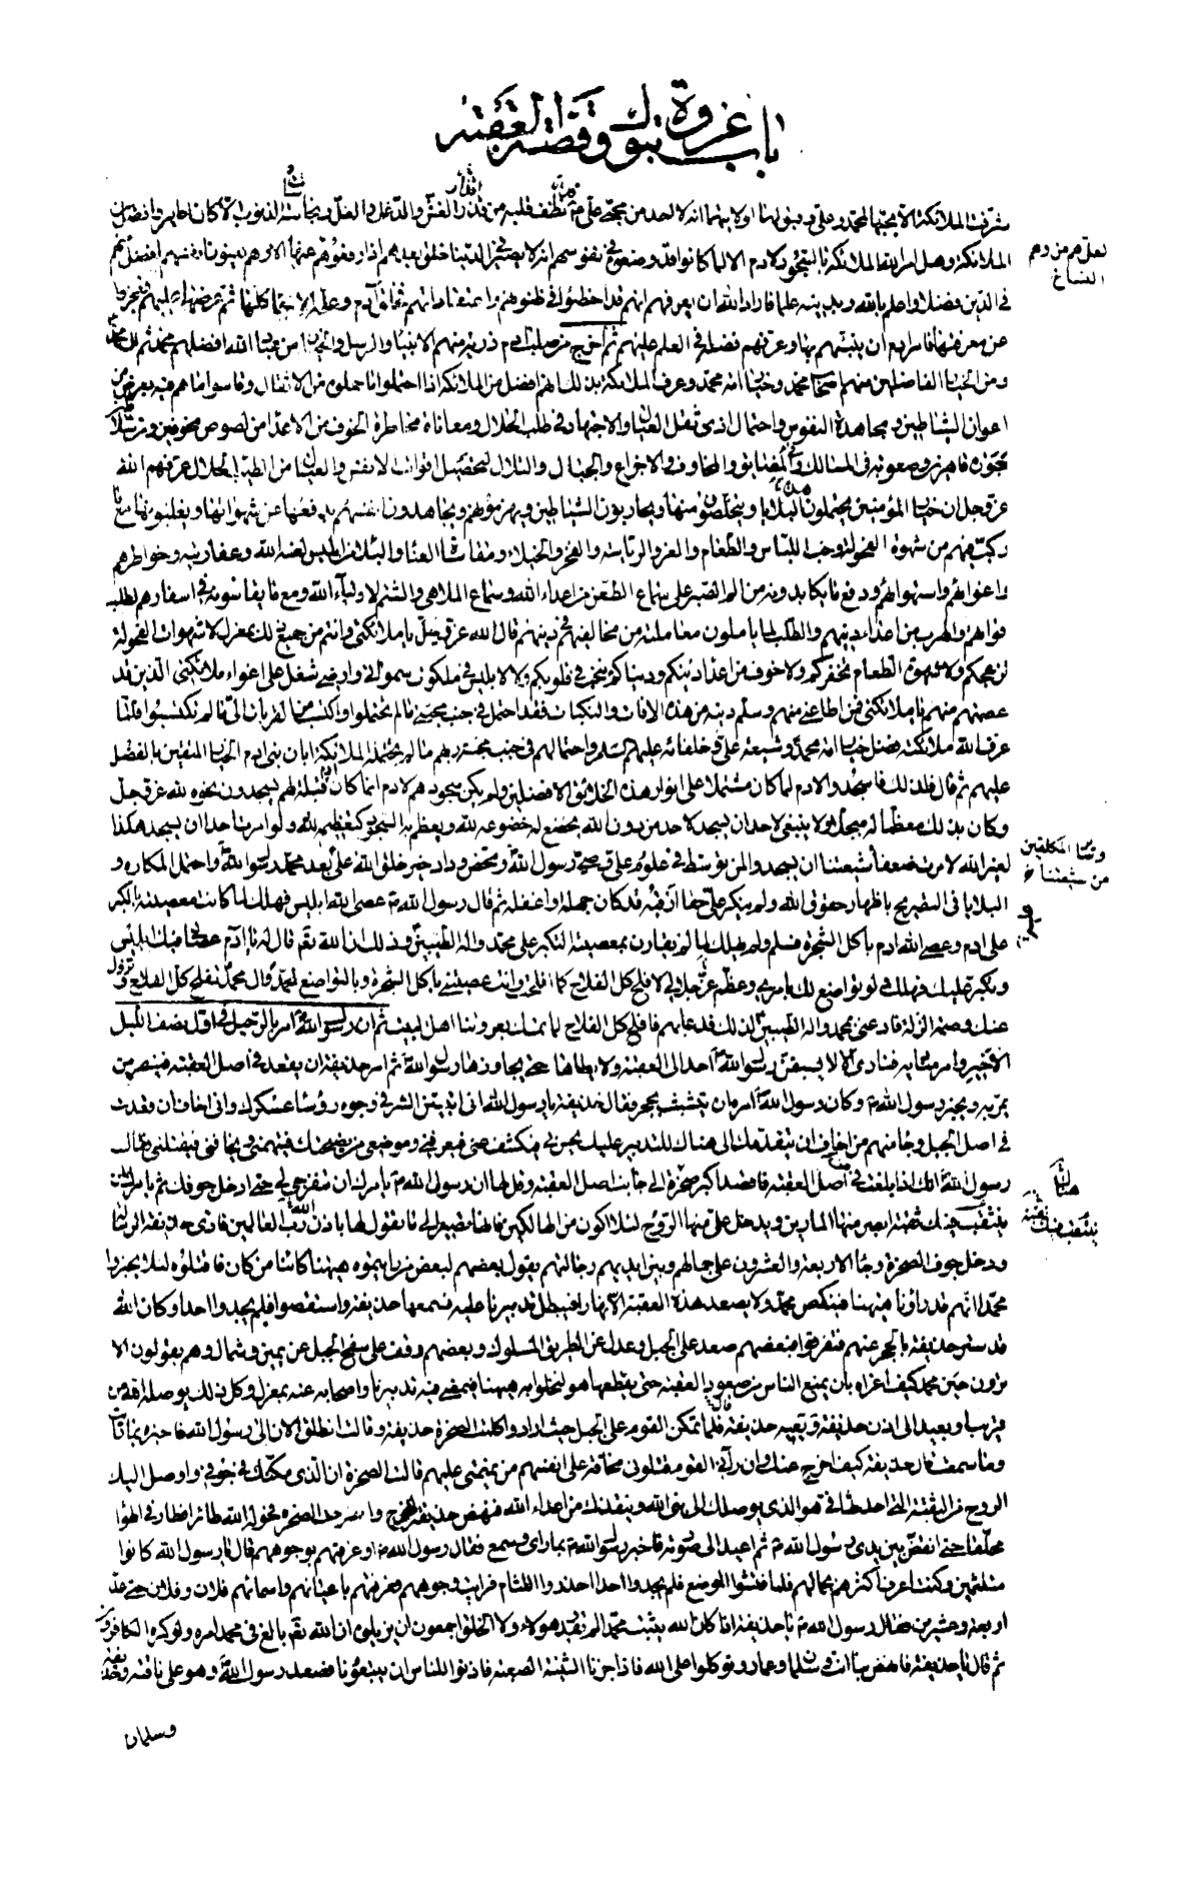 باب غزوة تبوك وقصة العقبة
شرفت الملائكة الا بحبها لمحمد وعلي وقبولها لولايتهما انه لا احد من محبي علي ع نظف قلبه من قذر الغش والدغل والغل ونجاسة الذنوب الا كان اطهر وافضل من
الملائكة وهل امر الله الملائكة بالسجود لادم الا لما كانوا قد وضعوه في نفوسهم انه لا يصير في الدنيا خلق بعدهم اذا رفعوهم عنها الا وهم يعنون انفسهم افضل منهم
في الدين فضلا واعلم بالله وبدينه علما فاراد الله ان يعرفهم انهم قد اخطؤا في ظنونهم واعتقاداتهم فخلق آدم وعلمه الاسماء كلها ثم عرضها عليهم فعجزوا
عن معرفتها فامر ادم ان ينبئهم بها وعرفهم فضله في العلم عليهم ثم اخرج من صلب ادم ذرية منهم الانبياء والرسل والخيار من عباد الله افضلهم محمد ثم آل محمد
ومن الخيار الفاضلين منهم اصحاب محمد وخيار امة محمد وعرف الملائكة بذلك انهم افضل من الملائكة اذا احتملوا ما حملوه من الاثقال وقاسوا ما هم فيه بعرض من
اعوان الشياطين ومجاهدة النفوس واحتمال اذى ثقل العيال والاجتهاد في طلب الحلال ومعاناة مخاطرة الخوف من الاعداء من لصوص مخوفين ومن سلاطين
جورة قاهرين وصعوبة في المسالك في المضايق والمخاوف والاجزاع والجبال والتلال لتحصيل اقوات الانفس والعيال من الطيب الحلال عرفهم الله
عز وجل ان خيار المؤمنين يحتملون هذه البلايا ويتخلصون منها ويحاربون الشياطين ويهزمونهم ويجاهدون انفسهم بدفعها عن شهواتها ويغلبونها مع ما
ركب فيهم من شهوة الفحولة وحب اللباس والطعام والعز والرياسة والفخر والخيلاء ومقاساة العناء والبلاء من ابليس لعنه الله وعفاريته وخواطرهم
واغوائهم واستهوائهم ودفع ما يكابدونه من الم الصبر على سماع الطعن من اعداء الله وسماع الملاهي والشتم لاولياء الله ومع ما يقاسونه في اسفارهم لطلب
اقواتهم والهرب من اعداء دينهم والطلب لما يأملون معاملته من مخالفيهم في دينهم قال الله عز وجل يا ملائكتي وانتم من جميع ذلك بمعزل لا شهوات الفحولة
تزعجكم ولا شهوة الطعام تحفزكم ولا خوف من اعداء دينكم ودنياكم ينخب في قلوبكم ولا لابليس في ملكوت سمواتي وارضي شغل على اغواء ملائكتي الذين قد
عصمتهم منهم يا ملائكتي فمن اطاعني منهم وسلم دينه من هذه الافات والنكبات فقد احتمل في جنب محبتي ما لم تحتملوا واكتسب من القربات الي ما لم تكتسبوا فلما
عرف الله ملائكته فضل خيار امة محمد وشيعة علي وخلفائه عليهم السلم واحتمالهم في جنب محبة ربهم ما لا يحتمله الملائكة ابان بني ادم الخيار المتقين بالفضل
عليهم ثم قال فلذلك فاسجدوا لادم لما كان مشتملا على انوار هذه الخلائق الافضلين ولم يكن سجودهم لادم انما كان ادم قبلة لهم يسجدون نحوه لله عز وجل
وكان بذلك معظما له مبجلا ولا ينبغي لاحد ان يسجد لاحد من دون الله يخضع له خضوعه لله ويعظم به السجود له كتعظيمه لله ولو امرت احدا ان يسجد هكذا
لغير الله لامرت ضعفاء شيعتنا ان يسجدوا لمن توسط في علوم علي وصي رسول الله ومحض وداد خير خلق الله علي بعد محمد رسول الله واحتمل المكاره و
البلايا في التصريح باظهار حقوق الله ولم ينكر علي حقا ارقبه قد كان جهله او اغفله ثم قال رسول الله ص عصى الله ابليس فهلك لما كانت معصيته بالكبر
على ادم وعصى الله ادم باكل الشجرة فسلم ولم يهلك لما لم يقارن بمعصيته التكبر على محمد واله الطيبين وذلك ان الله تعم قال له يا آدم عصاني فيك ابليس
وتكبر عليك فهلك ولو تواضع لك بامري وعظم عز جلالي لافلح كل الفلاح كما افلحت وانت عصيتني باكل الشجرة وبالتواضع لمحمد وآل محمد تفلح كل الفلاح وتزول
عنك وصمة الزلة فادعني بمحمد واله الطيبين لذلك فدعا بهم فافلح كل الفلاح لما تمسك بعروتنا اهل البيت ثم ان رسول الله امر بالرحيل في اول نصف الليل
الاخير وامر مناديه فنادى الا لا يسبقن رسول الله احد الى العقبة ولا يطاها حتى يجاوزها رسول الله ثم امر حذيفة ان يقعد في اصل العقبة فينظر من
يمر به ويخبر رسول الله ص وكان رسول الله امره ان يتشبث بحجر فقال حذيفة يا رسول الله اني اتبين الشر في وجوه رؤسا عسكرك واني اخاف ان قعدت
في اصل الجبل وجاء منهم من اخاف ان يتقدمك الى هناك للتدبير عليك يحس بي فيكشف عني فيعرفني وموضعي من نصيحتك فيتهمني ويخافني فيقتلني فقال
رسول الله انك اذا بلغت اصل العقبة فاقصد اكبر صخرة الى جانب اصل العقبة وقل لها ان رسول الله ص يامرك ان تنفرجي لي حتى ادخل جوفك ثم يامرك ان
ينثقب فيك ثقبة ابصر منها المارين ويدخل علي منها الروح لئلا اكون من الهالكين فانها تصير الى ما تقول لها باذن الله رب العالمين فادى حذيفة الرسالة
ودخل جوف الصخرة وجاء الاربعة والعشرون على جمالهم وبين ايديهم رجالتهم يقول بعضهم لبعض من رايتموه هيهنا كائنا من كان فاقتلوه لئلا يخبروا
محمدا انهم قد راونا هيهنا فينكص محمد ولا يصعد هذه العقبة الا نهارا فيبطل تدبيرنا عليه فسمعها حذيفة واستقصوا فلم يجدوا احدا وكان الله
قد ستر حذيفة بالحجر عنهم فتفرقوا فبعضهم صعد على الجبل وعدل عن الطريق المسلوك وبعضهم وقف على سفح الجبل عن يمين وشمال وهم يقولون الا
ترون حين محمد كيف اغراه بان يمنع الناس من صعود العقبة حتى يقطعها هو لنخلو به هيهنا فيمضي فيه تدبيرنا واصحابه عنه بمعزل وكل ذلك يوصله الله من
قريب او بعيد الى اذن حذيفة ويعيه حذيفة فلما تمكن القوم على الجبل حيث ارادوا كلمت الصخرة حذيفة وقالت انطلق الان الى رسول الله فاخبره بما رايت
وما سمعت قال حذيفة كيف اخرج عنك وان رآني القوم قتلوني مخافة على انفسهم من نميمتي عليهم قالت الصخرة ان الذي مكنك في جوفي واوصل اليك
الروح من الثقبة التي احدثها في هو الذي يوصلك الى نبي الله وينقذك من اعداء الله فنهض حذيفة ليخرج وانفرجت الصخرة فحوله الله طائرا فطار في الهوا
محلقا حتى انقض بين يدي رسول الله ص ثم اعيد الى صورته فاخبر رسول الله ص بما راى وسمع فقال رسول الله ص او عرفتهم بوجوههم قال يا رسول الله كانوا
متلثمين وكنت اعرف اكثرهم بجمالهم فلما فتشوا الموضع فلم يجدوا احدا احدروا اللثام فرايت وجوههم وعرفتهم باعيانهم واسمائهم فلان وفلان حتى عد
اربعة وعشرين فقال رسول الله ص يا حذيفة اذا كان الله يثبت محمدا لم يقدر هؤلاء ولا الخلق اجمعون ان يزيلوه ان الله تعم بالغ في محمد امره ولو كره الكافرون
ثم قال يا حذيفة فانهض بنا انت وسلمان وعمار وتوكلوا على الله فاذا جزنا الثنية الصعبة فاذنوا للناس ان يتبعونا فصعد رسول الله وهو على ناقته وحذيفة
وسلمان
لعل هم من وهم
النساخ
وسائر المكلفين
من شيعتنا